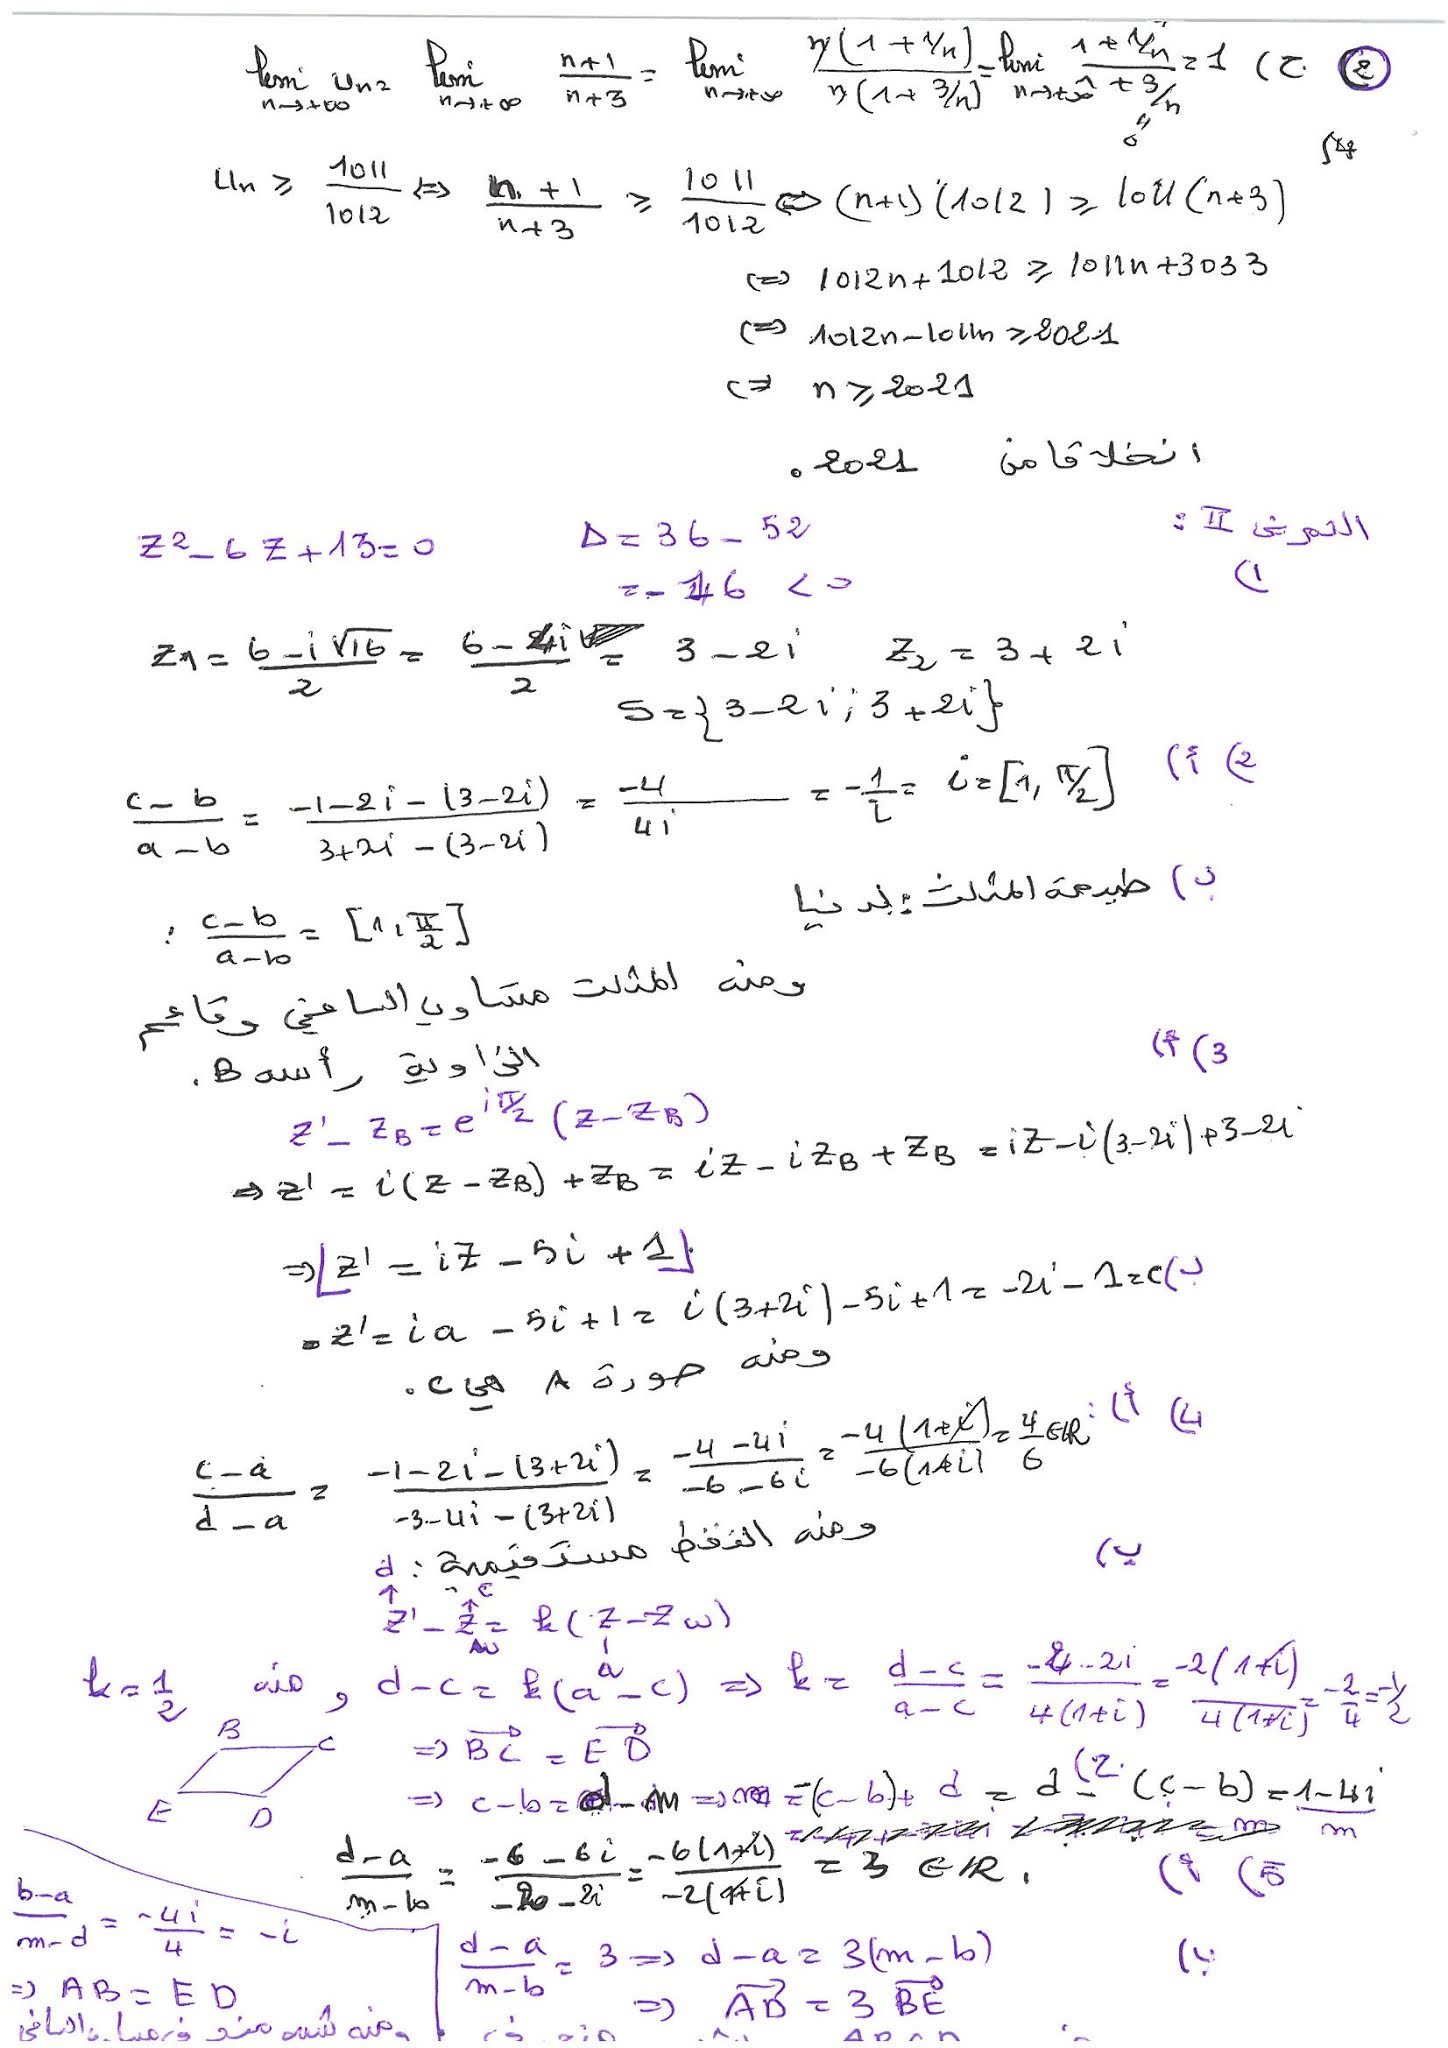 ② ج) lim n→+∞ Un = lim n→+∞ (n+1)/(n+3) = lim n→+∞ n(1+1/n)/n(1+3/n) = lim n→+∞ (1+1/n)/(1+3/n) = 1
Un ≥ 1011/1012 ⇔ (n+1)/(n+3) ≥ 1011/1012 ⇔ (n+1)(1012) ≥ 1011(n+3)
⇔ 1012n+1012 ≥ 1011n+3033
⇔ 1012n-1011n ≥ 2021
⇔ n ≥ 2021
انطلاقا من 2021.
التمرين II :
1) Z²-6Z+13=0 Δ=36-52
=-16 <0
Z1 = (6-i√16)/2 = (6-4i)/2 = 3-2i Z2 = 3+2i
S={3-2i; 3+2i}
2) أ) (c-b)/(a-b) = (-1-2i-(3-2i))/(3+2i-(3-2i)) = -4/4i = -1/i = i = [1, π/2]
ب) طبيعة المثلث: لدينا
(c-b)/(a-b) = [1, π/2] :
ومنه المثلث متساوي الساقين وقائم
الزاوية رأسه B.
3) أ)
z'-zB = e^(iπ/2) (z-zB)
⇒ z' = i(z-zB)+zB = iz-izB+zB = iz-i(3-2i)+3-2i
⇒ [z' = iz-5i+1]
ب) z' = ia-5i+1 = i(3+2i)-5i+1 = -2i-1 = c
ومنه صورة A هي C.
4) أ): (c-a)/(d-a) = (-1-2i-(3+2i))/(-3-4i-(3+2i)) = (-4-4i)/(-6-6i) = -4(1+i)/-6(1+i) = 4/6 ∈ IR
ومنه النقط مستقيمية :
ب)
d c
z'-zω = k(z-zω)
a
d-c = k(a-c) ⇒ k = (d-c)/(a-c) = (-2-2i)/4(1+i) = -2(1+i)/4(1+i) = -2/4 = -1/2
ومنه k=1/2
B C
E D
⇒ BC = ED
ج) ⇒ c-b = d-m ⇒ m = -(c-b)+d = d-(c-b) = 1-4i
m m
5) أ) (d-a)/(m-b) = (-6-6i)/(-2-2i) = -6(1+i)/-2(1+i) = 3 ∈ IR.
ب) (d-a)/(m-b) = 3 ⇒ d-a = 3(m-b)
⇒ AD = 3 BE
(b-a)/(m-d) = -4i/4 = -i
⇒ AB = ED
ومنه شبه منحرف متساوي الساقين